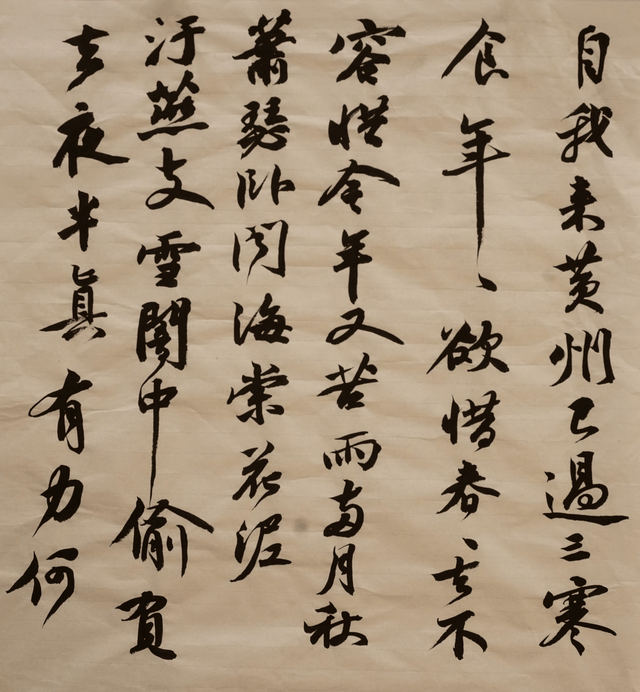 自我来黄州已過三寒
食年、欲惜春、去不
容惜今年又苦雨兩月秋
蕭瑟卧聞海棠花泥
汙燕支雪闇中偷負
去夜半眞有力何